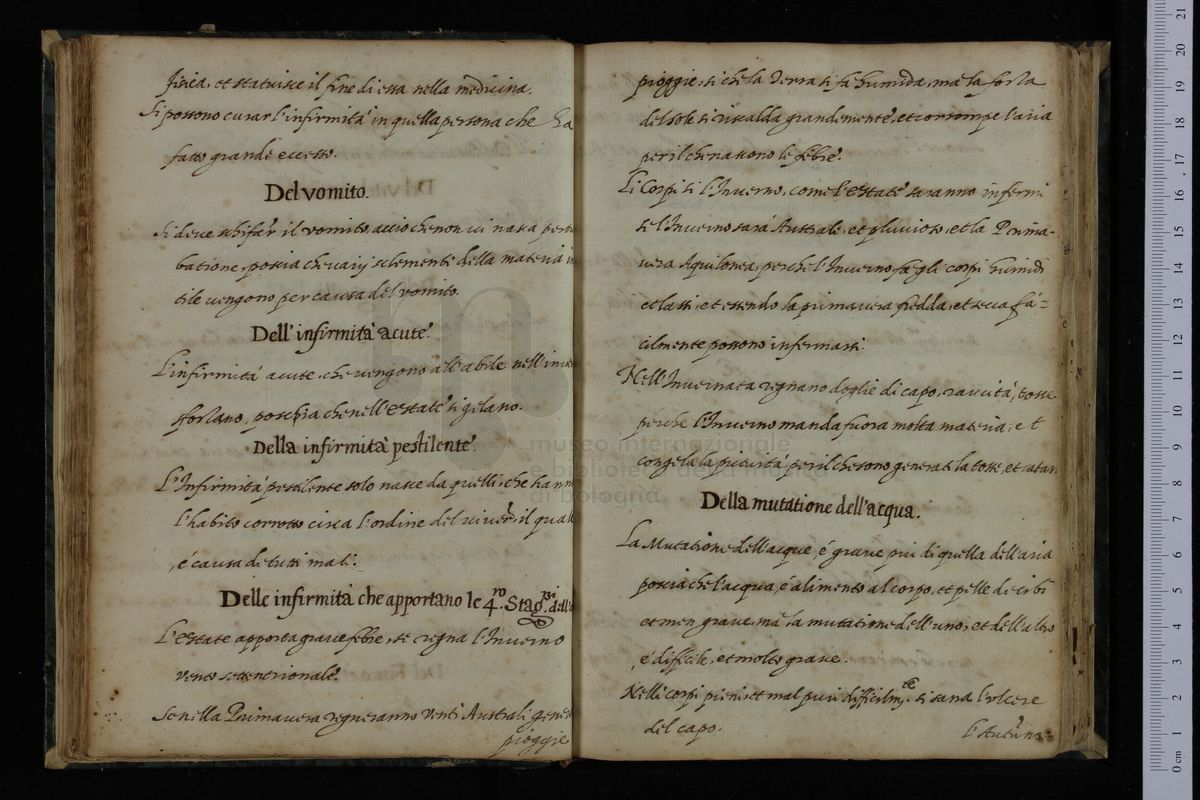 fisica, et statuisce il fine di essa nella medicina.
Si possono curar l'infirmità in quella persona che ha
fatto grande eccesso.
Del vomito.
Si deve schifar il vomito, acciò che non vi nasca
batione, poscia che varij elementi della materia
vengono per causa del vomito.
Dell' infirmità acute.
L'infirmità acute, che vengono all'abile nell'
sforzano, poschia che nell'Estate si gelano.
Della infirmità pestilente.
L'Infirmità pestilente solo nasce da quelli, che hann
l'habito corrotto circa l'ordine del viver, il qual
é causa di tutti mali.
Delle infirmità che apportano le 4.ro Stag.ni dell'
L'Estate apporta grave febre, se regna l'Inverno
vento settentrionale.
Se nella Primavera regneranno venti Australi gener
pioggie
pioggie: si che la Terra si fà humida, mà la forza
del sole si riscalda grandemente, et corrompe l'aria
per il che nascono le febre.
Li Corpi si l'Inverno, come l'Estate saranno infermi
se l'Inverno sarà Australe, et pluvioso, et la Prima-
vera Aquilonea, perche l'Inverno fà gli corpi humidi
et lassi, et essendo la primavera fredda, et secca fà-
cilmente possono infermarsi.
Nell'Invernata regnano doglie di capo, raucità, tosse
perche l'Inverno manda fuora molta materia, et
congela la per il che sono generati la tosse, et catar
Della mutatione dell'acqua.
La Mutatione dell'acque, é grave piu di quella dell'aria
poscia che l'acqua, é alimento al corpo, et di cibi
et men grave, mà la mutatione dell'uno, et dell'altro
é difficile, et molto grave.
Nelli corpi pieni et mal puri difficilm.te si sana l'ulcere
del capo.
L'Autunno
museo internazionale
e biblioteca della musica
di bologna